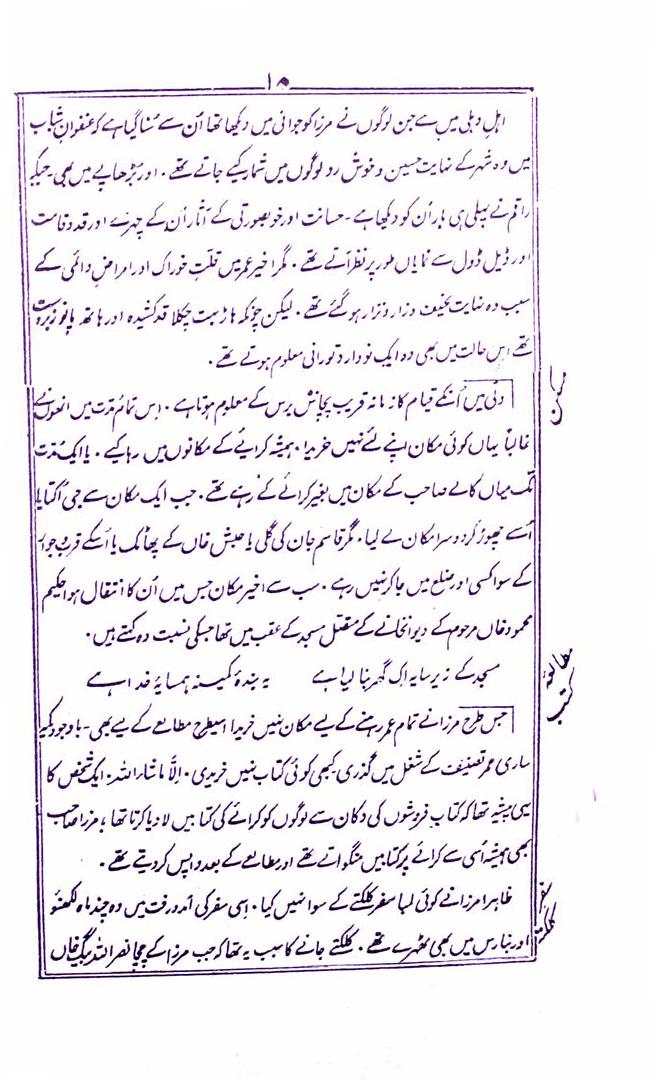 ۱۵
اہلِ دہلی میں سے جن لوگوں نے مرزا کو جوانی میں دیکھا تھا اُن سے سُنا گیا ہے کہ عنفوانِ شباب
میں وہ شہر کے نہایت حسین و خوش رو لوگوں میں شمار کیے جاتے تھے۔ اور بڑھاپے میں بھی جبکہ
راقم نے پہلی ہی بار اُن کو دیکھا ہے۔ حسانت اور خوبصورتی کے آثار اُن کے چہرے اور قد و قامت
اور ڈیل ڈول سے نمایاں طور پر نظر آتے تھے۔ مگر اخیر عمر میں قلّتِ خوراک اور امراضِ دائمی کے
سبب وہ نہایت نحیف و زار و نزار ہو گئے تھے۔ لیکن چونکہ ہاڑ بہت چکلا قد کشیدہ اور ہاتھ پانو زبردست
تھے اِس حالت میں بھی وہ ایک نو وارد تورانی معلوم ہوتے تھے۔
مسکن
دلّی میں اُنکے قیام کا زمانہ قریب پچاس برس کے معلوم ہوتا ہے۔ اِس تمام مُدت میں انھوں نے
غالباً یہاں کوئی مکان اپنے لئے نہیں خریدا۔ ہمیشہ کرایے کے مکانوں میں رہا کیے۔ یا ایک مُدت
تک میاں کالے صاحب کے مکان میں بغیر کرائے کے رہے تھے۔ جب ایک مکان سے جی اُکتایا
اُسے چھوڑ کر دوسرا مکان لے لیا۔ مگر قاسم جان کی گلی یا حبش خاں کے پھاٹک یا اُسکے قرب و جوار
کے سوا کسی اور ضلع میں جا کر نہیں رہے۔ سب سے اخیر مکان جس میں اُن کا انتقال ہوا حکیم
محمود خاں مرحوم کے دیوانخانے کے متصل مسجد کے عقب میں تھا جسکی نسبت وہ کہتے ہیں۔
مسجد کے زیرِ سایہ اِک گھر بنا لیا ہے یہ بندۂ کمینہ ہمسایۂ خدا ہے
مطالعۂ کتب
جس طرح مرزا نے تمام عمر رہنے کے لیے مکان نہیں خریدا اسیطرح مطالعے کے لیے بھی۔ باوجودیکہ
ساری عمر تصنیف کے شغل میں گذری کبھی کوئی کتاب نہیں خریدی۔ اِلّا ماشاء اللہ۔ ایک شخص کا
یہی پیشہ تھا کہ کتاب فروشوں کی دکان سے لوگوں کو کرائے کی کتابیں لا دیا کرتا تھا؛ مرزا صاحب
بھی ہمیشہ اُسی سے کرائے پر کتابیں منگواتے تھے اور مطالعے کے بعد واپس کر دیتے تھے۔
سفر کلکتہ
ظاہرا مرزا نے کوئی لمبا سفر کلکتے کے سوا نہیں کیا۔ اِسی سفر کی آمد و رفت میں وہ چند ماہ لکھنؤ
اور بنارس میں بھی ٹھہرے تھے۔ کلکتے جانے کا سبب یہ تھا کہ جب مرزا کے چچا نصر اللہ بیگ خاں